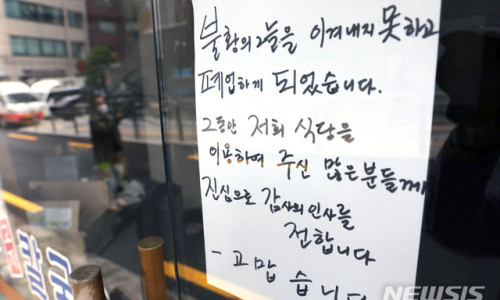 불황의 그늘을 이겨내지 못하고
폐업하게 되었습니다.
그동안 저희 식당을
이용하여 주신 많은 분들께
진심으로 감사의 인사를
전합니다
- 고맙습니다
NEWSIS